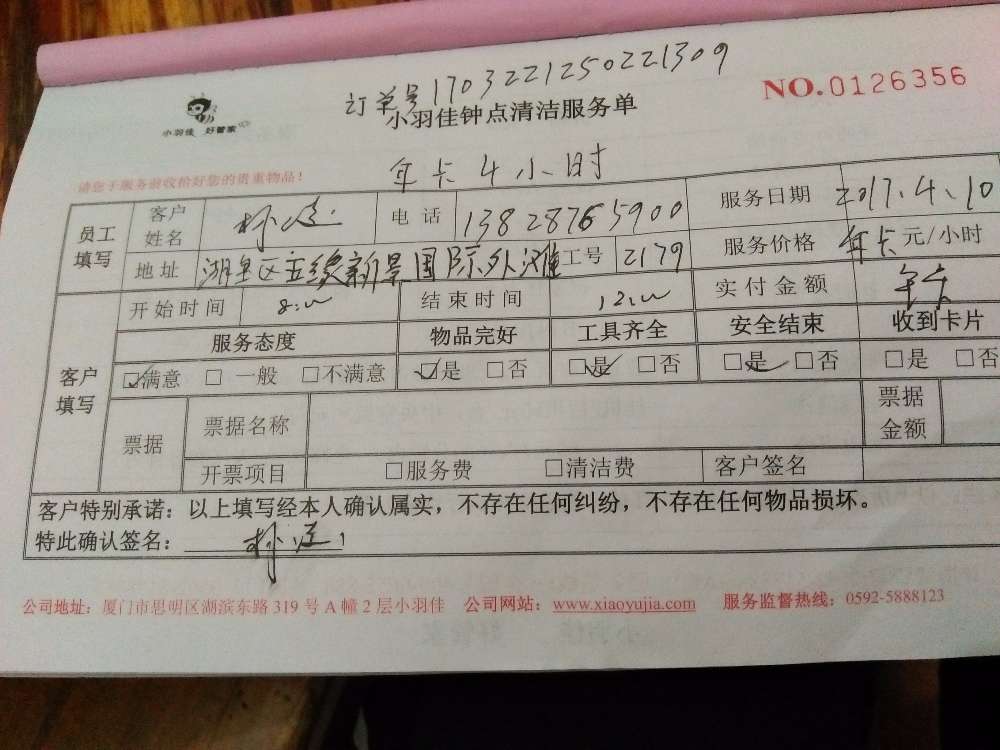 订单号1703221250221309
NO.0126356
小羽佳 好管家
小羽佳钟点清洁服务单
请您于服务前收拾好您的贵重物品!
年卡4小时
员工填写 客户姓名 林 电话 13828765900 服务日期 2017.4.10
地址 湖里区五缘新景国际外滩 工号 2179 服务价格 年卡 元/小时
客户填写 开始时间 8:00 结束时间 12:00 实付金额 年卡
服务态度 物品完好 工具齐全 安全结束 收到卡片
☑满意 □一般 □不满意 ☑是 □否 ☑是 □否 ☑是 □否 □是 □否
票据 票据名称 票据金额
开票项目 □服务费 □清洁费 客户签名
客户特别承诺:以上填写经本人确认属实,不存在任何纠纷,不存在任何物品损坏。
特此确认签名: 林
公司地址:厦门市思明区湖滨东路 319 号 A 幢 2 层小羽佳 公司网站:www.xiaoyujia.com 服务监督热线:0592-5888123